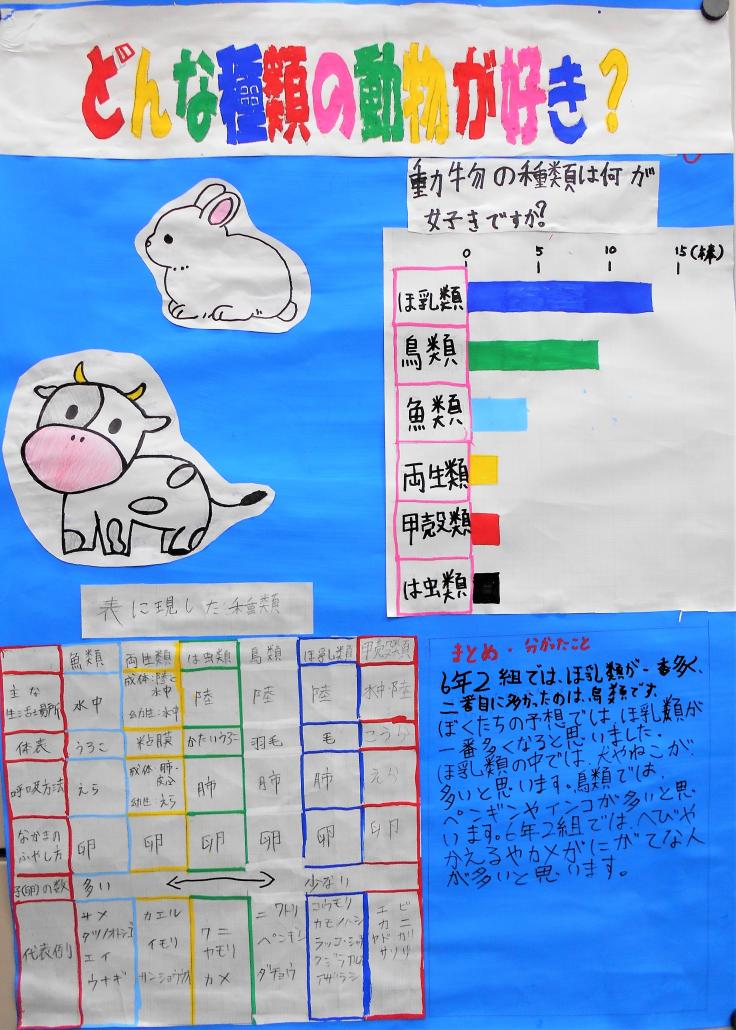 どんな種類の動物が好き?
動物の種類は何が
好きですか?
0 5 10 15(体)
ほ乳類
鳥類
魚類
両生類
甲殻類
は虫類
表に現した種類
魚類 両生類 は虫類 鳥類 ほ乳類 甲殻類
主な生活場所 水中 成体:陸と水中 幼生:水中 陸 陸 陸 水中・陸
体表 うろこ 粘膜 かたいうろこ 羽毛 毛 こうら
呼吸方法 えら 成体:肺・皮ふ 幼生:えら 肺 肺 肺 えら
なかまのふやし方 卵 卵 卵 卵 卵 卵
子(卵)の数 多い 少ない
代表例
サメ
タツノオトシゴ
エイ
ウナギ
カエル
イモリ
サンショウウオ
ワニ
ヤモリ
カメ
ニワトリ
ペンギン
ダチョウ
コウモリ
カモノハシ
アザラシ
エビ
カニ
ヤドカリ
サソリ
まとめ・分かったこと
6年2組では、ほ乳類が一番多く、
二番目に多かったのは、鳥類です。
ぼくたちの予想では、ほ乳類が
一番多くなると思いました。
ほ乳類の中では、犬やねこが
多いと思います。鳥類では、
ペンギンやインコが多いと思
います。6年2組では、へびや
かえるやカメがにがてな人
が多いと思います。